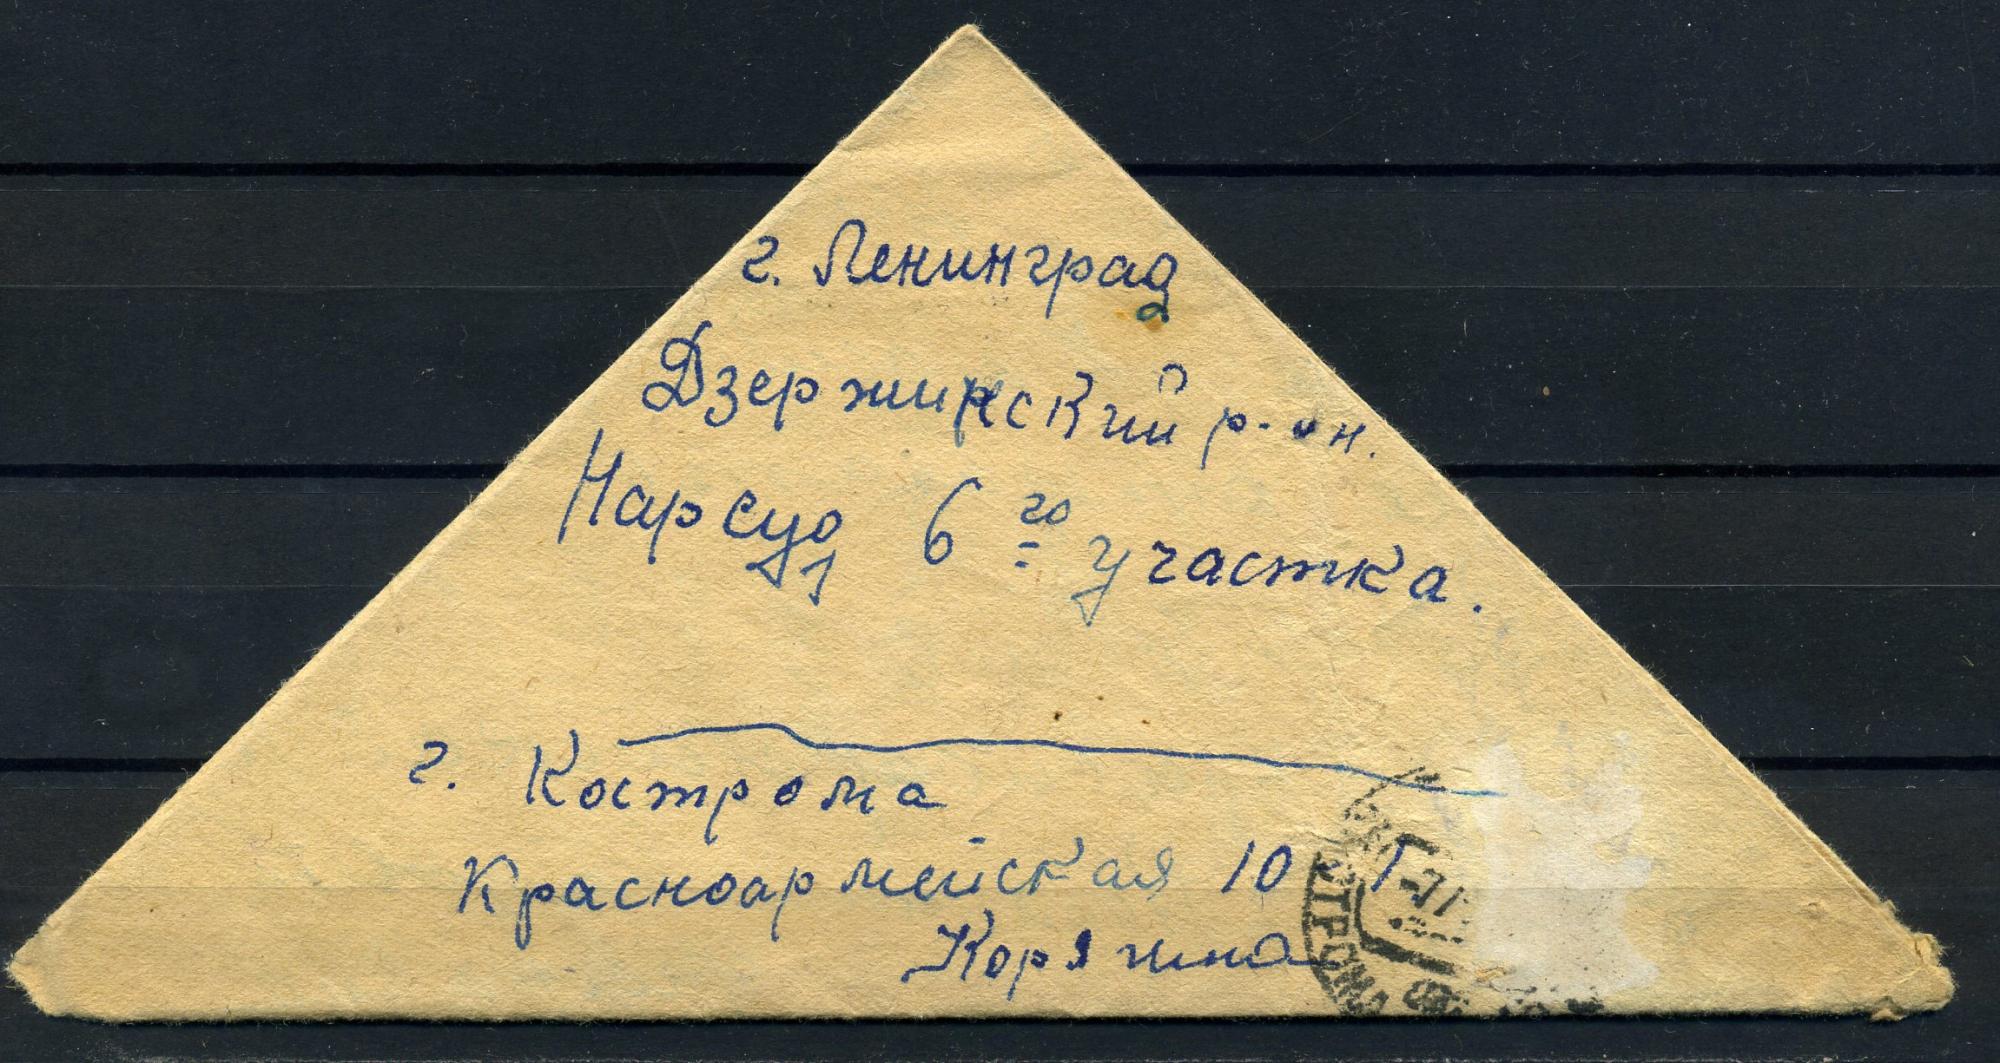 г. Ленинград
Дзержинский р-он.
Нарсуд 6го участка.
г. Кострома
Красноармейская 10
Корягина